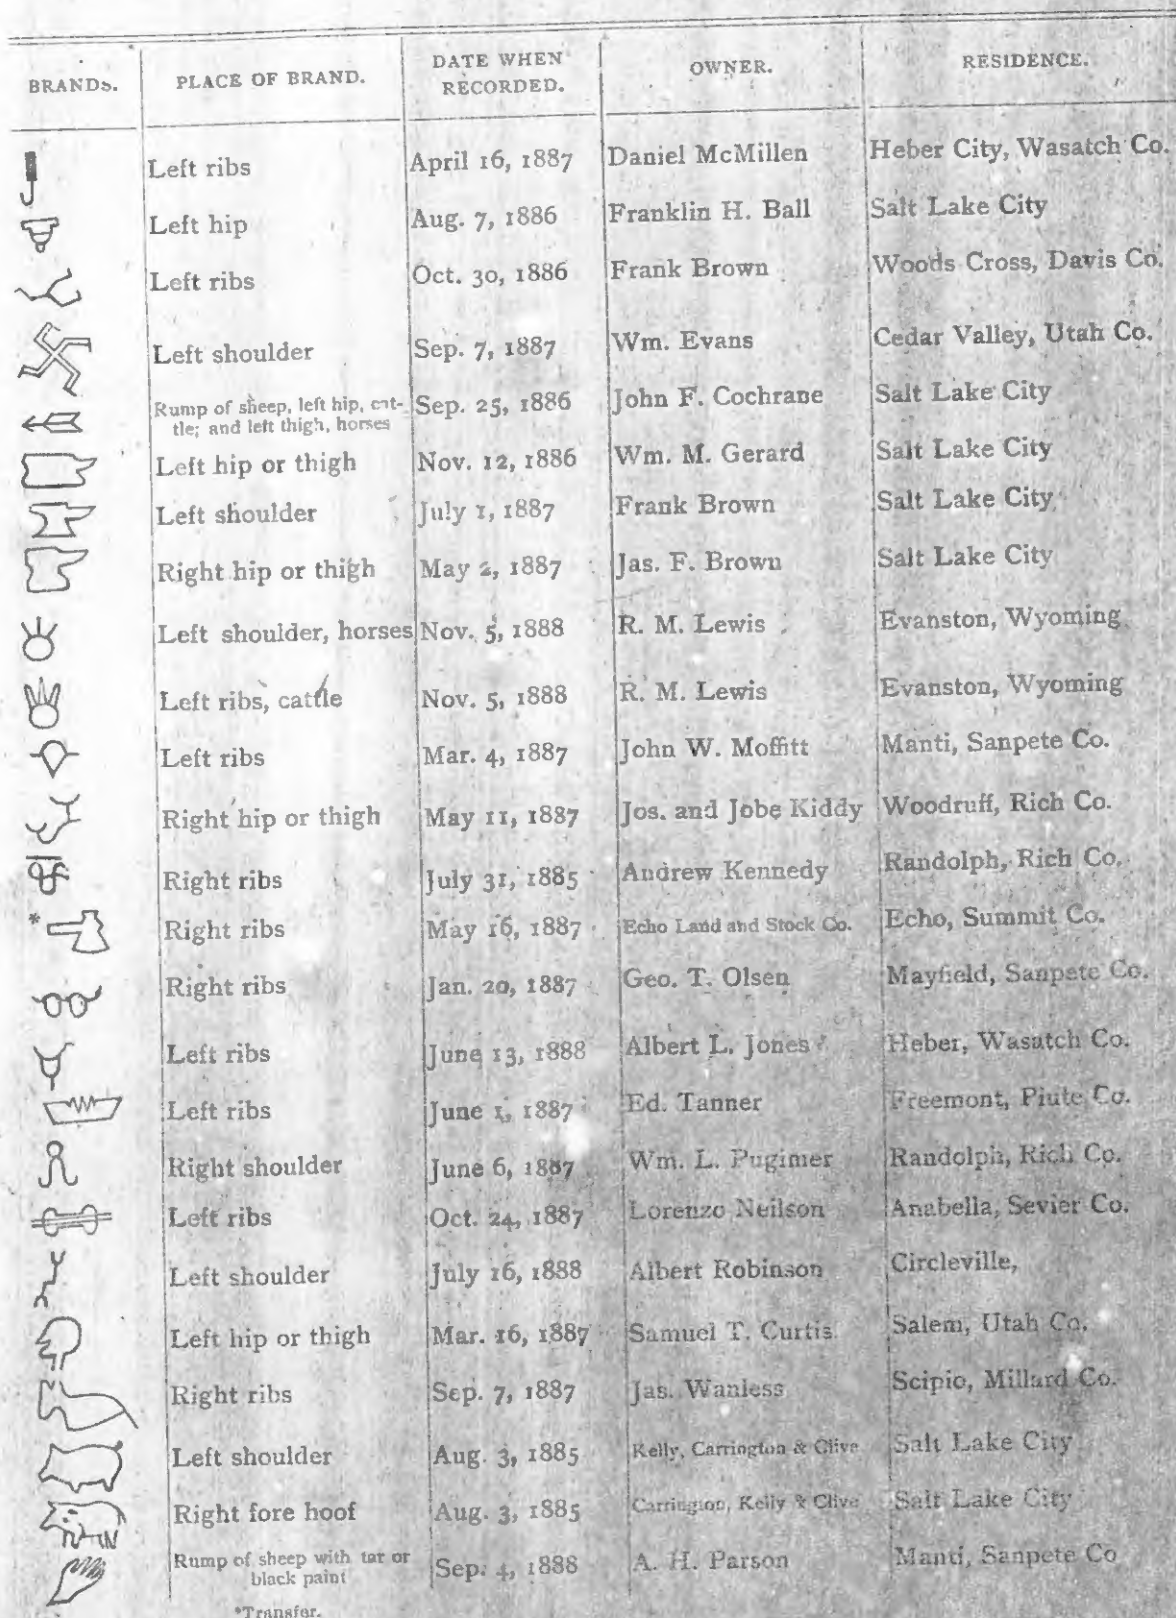 BRANDS. PLACE OF BRAND. DATE WHEN RECORDED. OWNER. RESIDENCE.
Left ribs April 16, 1887 Daniel McMillen Heber City, Wasatch Co.
Left hip Aug. 7, 1886 Franklin H. Ball Salt Lake City
Left ribs Oct. 30, 1886 Frank Brown Woods Cross, Davis Co.
Left shoulder Sep. 7, 1887 Wm. Evans Cedar Valley, Utah Co.
Rump of sheep, left hip, cat- Sep. 25, 1886 John F. Cochrane Salt Lake City
tle; and left thigh, horses
Left hip or thigh Nov. 12, 1886 Wm. M. Gerard Salt Lake City
Left shoulder July 1, 1887 Frank Brown Salt Lake City
Right hip or thigh May 2, 1887 Jas. F. Brown Salt Lake City
Left shoulder, horses Nov. 5, 1888 R. M. Lewis Evanston, Wyoming
Left ribs, cattle Nov. 5, 1888 R. M. Lewis Evanston, Wyoming
Left ribs Mar. 4, 1887 John W. Moffitt Manti, Sanpete Co.
Right hip or thigh May 11, 1887 Jos. and Jobe Kiddy Woodruff, Rich Co.
Right ribs July 31, 1885 Andrew Kennedy Randolph, Rich Co.
* Right ribs May 16, 1887 Echo Land and Stock Co. Echo, Summit Co.
Right ribs Jan. 20, 1887 Geo. T. Olsen Mayfield, Sanpete Co.
Left ribs June 13, 1888 Albert L. Jones Heber, Wasatch Co.
Left ribs June 1, 1887 Ed. Tanner Freemont, Piute Co.
Right shoulder June 6, 1887 Wm. L. Pugimer Randolph, Rich Co.
Left ribs Oct. 24, 1887 Lorenzo Neilson Anabella, Sevier Co.
Left shoulder July 16, 1888 Albert Robinson Circleville,
Left hip or thigh Mar. 16, 1887 Samuel T. Curtis Salem, Utah Co.
Right ribs Sep. 7, 1887 Jas. Wanless Scipio, Millard Co.
Left shoulder Aug. 3, 1885 Kelly, Carrington & Clive Salt Lake City
Right fore hoof Aug. 3, 1885 Carrington, Kelly & Clive Salt Lake City
Rump of sheep with tar or Sep. 4, 1888 A. H. Parson Manti, Sanpete Co
black paint
*Transfer.